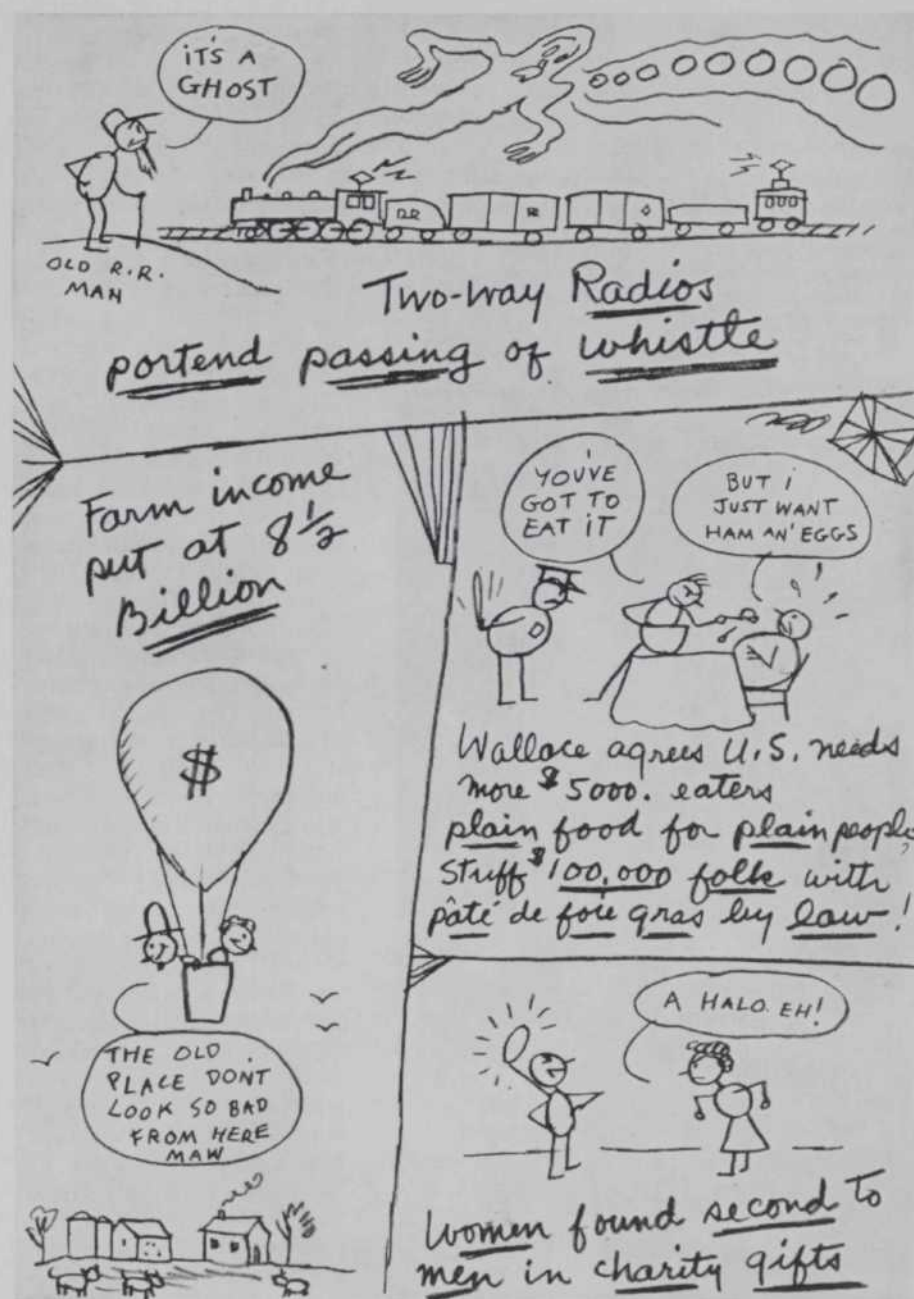 IT'S A
GHOST
OLD R.R.
MAN
RR
R
Two-way Radios
portend passing of whistle
Farm income
put at 8½
Billion
$
THE OLD
PLACE DONT
LOOK SO BAD
FROM HERE
MAW
YOU'VE
GOT TO
EAT IT
BUT I
JUST WANT
HAM AN' EGGS
Wallace agrees U.S. needs
more $5000. eaters
plain food for plain people,
Stuff $100,000 folk with
pâté de foie gras by law!
A HALO. EH!
Women found second to
men in charity gifts